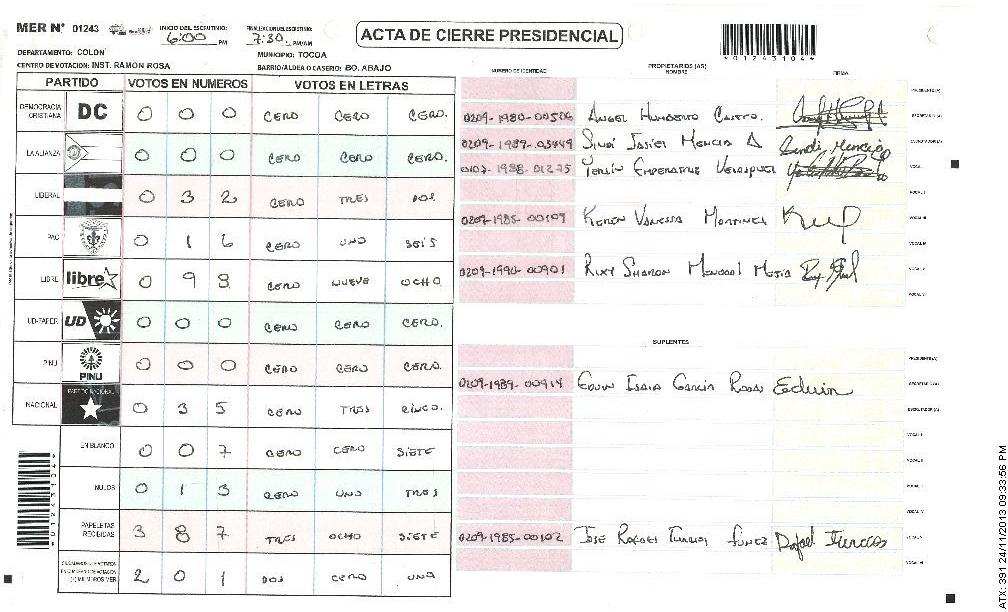 MER N° 01243 INICIO DEL ESCRUTINIO: 6:00 PM FINALIZACION DEL ESCRUTINIO: 7:30 PM/AM
ACTA DE CIERRE PRESIDENCIAL
*01243104*
DEPARTAMENTO: COLON MUNICIPIO: TOCOA
CENTRO DE VOTACION: INST. RAMON ROSA BARRIO/ALDEA O CASERIO: BO. ABAJO
NUMERO DE IDENTIDAD PROPIETARIOS (AS) NOMBRE FIRMA
PARTIDO VOTOS EN NUMEROS VOTOS EN LETRAS
DEMOCRACIA CRISTIANA DC 0 0 0 CERO CERO CERO.
LA ALIANZA 0 0 0 CERO CERO CERO.
LIBERAL 0 3 2 CERO TRES DOS
PAC 0 1 6 CERO UNO SEIS
LIBRE libre 0 9 8 CERO NUEVE OCHO
UD-FAPER UD 0 0 0 CERO CERO CERO.
PINU PINU 0 0 0 CERO CERO CERO.
NACIONAL PARTIDO NACIONAL 0 3 5 CERO TRES CINCO.
EN BLANCO 0 0 7 CERO CERO SIETE
NULOS 0 1 3 CERO UNO TRES
PAPELETAS RECIBIDAS 3 8 7 TRES OCHO SIETE
2 0 1 DOS CERO UNO
*01243104*
PRESIDENTE(A)
0209-1980-00506 ANGEL HUMBERTO CASTRO. SECRETARIO(A)
0209-1989-03449 SINDI Sindi Mencia ESCRUTADOR(A)
0107-1988-01275 VOCAL I
VOCAL II
0209-1985-00109 KAREN VANESSA MARTINEZ VOCAL III
VOCAL IV
0209-1990-00901 RUXY SHARON MEJIA VOCAL V
VOCAL VI
SUPLENTES
PRESIDENTE(A)
0209-1989-00914 EDUIN ISAIA GARCIA ROSAS Eduin SECRETARIO(A)
ESCRUTADOR(A)
VOCAL I
VOCAL II
VOCAL III
VOCAL IV
0209-1985-00102 JOSE RAFAEL FUNEZ Rafael VOCAL V
VOCAL VI
ATX: 391 24/11/2013 09:33:56 PM